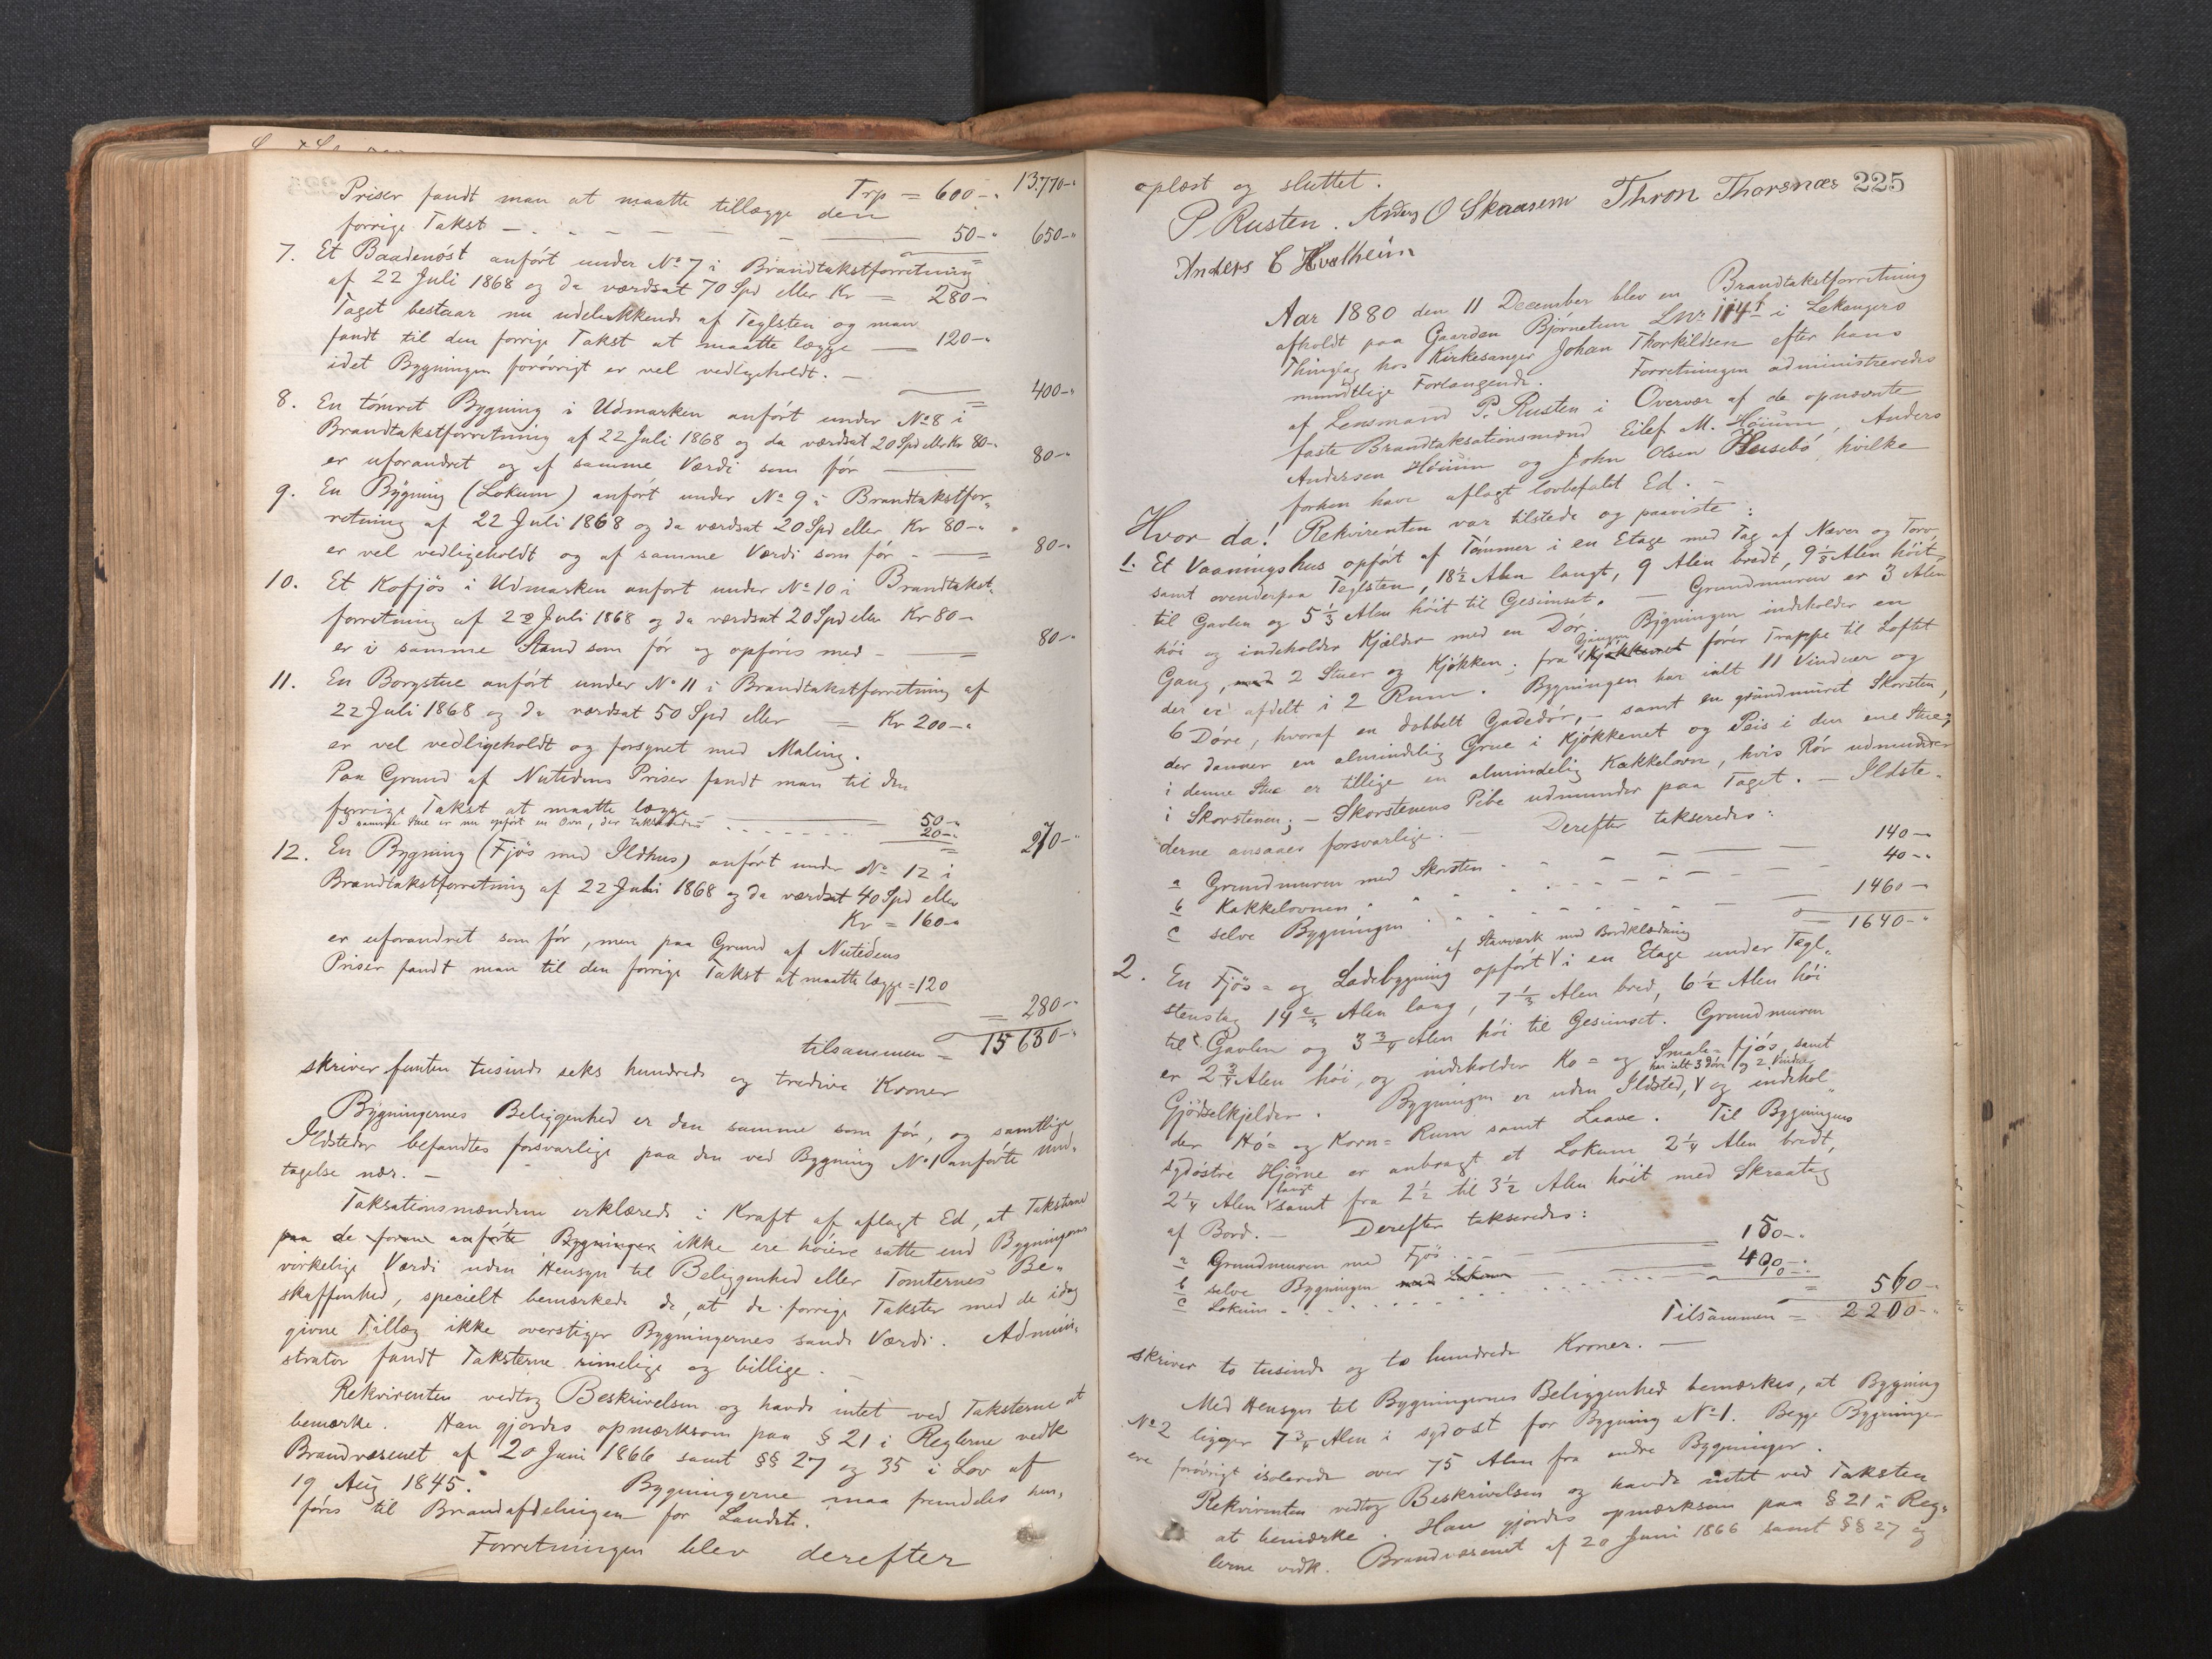 Trp = 600-" 13.770-"
Priser fandt man at maatte tillægge den
forrige Takst — - - - - — 50-" 650-"
7. Et Baadenøst anført under No 7 i Brandtakstforretning
af 22 Juli 1868 og da værdsat 70 Spd eller Kr = 280-
Taget bestaar nu udelukkende af Teglsten og man
fandt til den forrige Takst at maatte lægge — 120-"
idet Bygningen forøvrigt er vel vedligeholdt. —
400-"
8. En tømret Bygning i Udmarken anført under No 8 i
Brandtakstforretning af 22 Juli 1868 og da værdsat 20 Spd eller Kr 80-"
er uforandret og af samme Værdi som før — 80-"
9. En Bygning (Lokum) anført under No 9 i Brandtakstfor-
retning af 22 Juli 1868 og da værdsat 20 Spd eller Kr 80-"
er vel vedligeholdt og af samme Værdi som før - — 80-"
10. Et Kofjøs i Udmarken anført under No 10 i Brandtakst-
forretning af 22 Juli 1868 og da værdsat 20 Spd eller Kr 80-
er i samme Stand som før og opføres med - — 80-"
11. En Borgstue anført under No 11 i Brandtakstforretning af
22 Juli 1868 og da værdsat 50 Spd eller = Kr 200-"
er vel vedligeholdt og forsynet med Maling.
Paa Grund af Nutidens Priser fandt man til den
forrige Takst at maatte lægge — 50-"
I samme Stue er nu opført en Ovn, der takseredes - - - - 20-"
270-"
12. En Bygning (Fjøs med Ildhus) anført under No 12 i
Brandtakstforretning af 22 Juli 1868 og da værdsat 40 Spd eller
Kr = 160-"
er uforandret som før, men paa Grund af Nutidens
Priser fandt man til den forrige Takst at maatte lægge = 120
= 280-"
tilsammen = 15630-"
skriver femten tusinde seks hundrede og tredive Kroner
Bygningernes Beliggenhed er den samme som før, og samtlige
Ildsteder befandtes forsvarlige paa den ved Bygning No 1 anførte Und-
tagelse nær. —
Taksationsmændene erklærede i Kraft af aflagt Ed, at Taksterne
paa de foran anførte Bygninger ikke ere høiere satte end Bygningernes
virkelige Værdi uden Hensyn til Beliggenhed eller Tomternes Be-
skaffenhed, specielt bemærkede de, at de forrige Takster med de idag
givne Tillæg ikke overstiger Bygningernes sande Værdi. Admini-
strator fandt Taksterne rimelige og billige. —
Rekvirenten vedtog Beskrivelsen og havde intet ved Taksterne at
bemærke. Han gjordes opmærksom paa § 21 i Reglerne vedk
Brandvæsenet af 20 Juni 1866 samt §§ 27 og 35 i Lov af
19 Aug 1845. Bygningerne maa fremdeles hen-
føres til Brandafdelingen for Landet.
Forretningen blev derefter
225
oplæst og sluttet.
P Rusten. Anders O Skaasem Thron Thorsnæs
Anders E Hvalheim
Aar 1880 den 11 December blev en Brandtakstforretning
afholdt paa Gaarden Bjørnetun LNr 114 f i Lekangers
Thinglag hos Kirkesanger Johan Thorkildsen efter hans
mundtlige Forlangende. Forretningen administreredes
af Lensmand P. Rusten i Overvær af de opnævnte
faste Brandtaksationsmænd Eilef M. Høium, Anders
Andersen Høium og John Olsen Husebø, hvilke
forhen have aflagt lovbefalet Ed. —
Hvor da! Rekvirenten var tilstede og paaviste:
1. Et Vaaningshus opført af Tømmer i en Etage med Tag af Næver og Torv
samt ovenderpaa Teglsten, 18 1/2 Alen langt, 9 Alen bredt, 9 1/3 Alen høit
til Gavlen og 5 1/3 Alen høit til Gesimset. — Grundmuren er 3 Alen
høi og indeholder Kjælder med en Dør. Bygningen indeholder en
Gang, med 2 Stuer og Kjøkken; fra Gangen Kjøkkenet fører Trappe til Loftet
der er afdelt i 2 Rum. Bygningen har ialt 11 Vinduer og
6 Døre, hvoraf en dobbelt Gadedør, — samt en grundmuret Skorsten,
der danner en almindelig Grue i Kjøkkenet og Peis i den ene Stue;
i denne Stue er tillige en almindelig Kakkelovn, hvis Rør udmunder
i Skorstenen; — Skorstenens Pibe udmunder paa Taget. — Ildste-
derne ansaaes forsvarlige. — Derefter takseredes:
a Grundmuren med Skorsten - - - — 140-"
b Kakkelovnen - - - - — 40-"
c selve Bygningen - - - - — 1460-
= 1640-"
2. En Fjøs= og Ladebygning opført af Stavværk med Bordklædning i en Etage under Tegl-
stenstag 14 2/3 Alen lang, 7 1/3 Alen bred, 6 1/2 Alen høi
til Gavlen og 3 3/4 Alen høi til Gesimset. Grundmuren
er 2 3/4 Alen høi, og indeholder Ko= og Smale=fjøs, samt
Gjødselkjelder. Bygningen er uden Ildsted, har ialt 3 Døre og 2 Vinduer og indehol-
der Hø= og Korn=Rum samt Laave. Til Bygningens
sydøstre Hjørne er anbragt et Lokum 2 1/4 Alen bredt,
2 1/4 Alen langt samt fra 2 1/2 til 3 1/2 Alen høit med Skraatag
af Bord. — Derefter takseredes:
a Grundmuren med Fjøs - - — 150-"
b selve Bygningen med Lokum — 400-"
c Lokum - - - - - - - 10-"
= 560-"
Tilsammen = 2200-"
skriver to tusinde og to hundrede Kroner. —
Med Hensyn til Bygningernes Beliggenhed bemærkes, at Bygning
No 2 ligger 7 3/4 Alen i sydost for Bygning No 1. Begge Bygninger
ere forøvrigt isolerede over 75 Alen fra andre Bygninger.
Rekvirenten vedtog Beskrivelsen og havde intet ved Taksten
at bemærke. Han gjordes opmærksom paa § 21 i Reg-
lerne vedk. Brandvæsenet af 20 Juni 1866 samt §§ 27 og